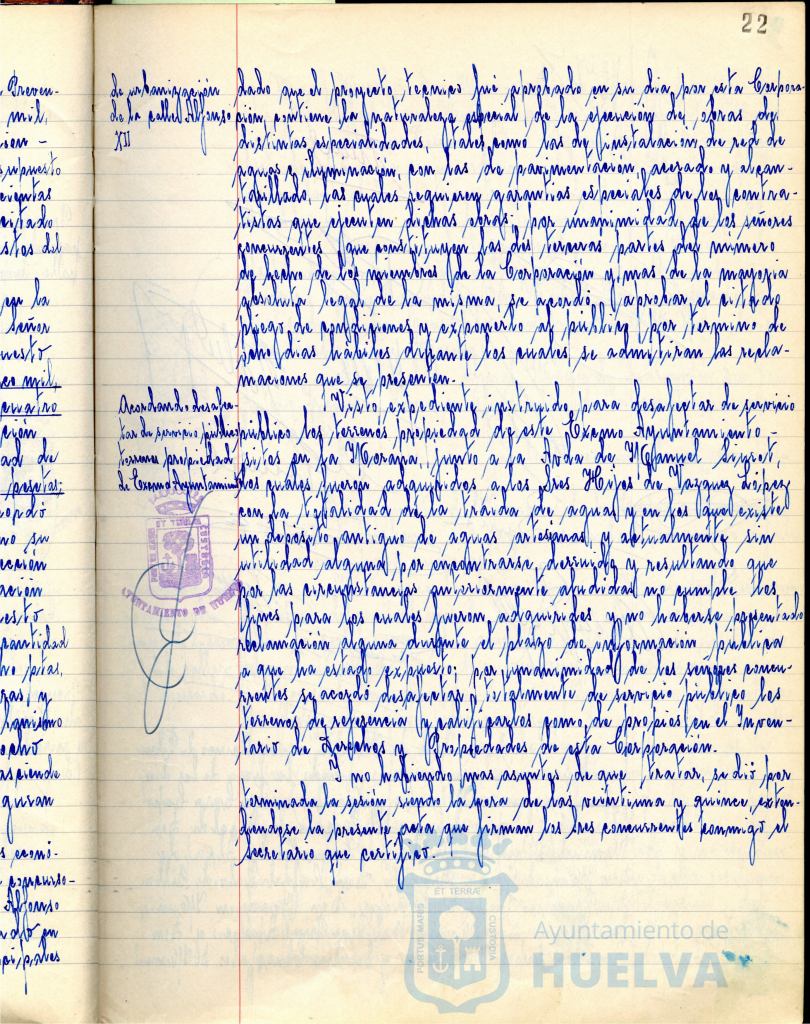 22
Preven-
mil,
supuesto
cientas
citado
stos del
en la
señor
uesto
co mil,
cuatro
ción
ad de
pesetas;
ordó
no su
ección
ación
uesto
cantidad
no ptas,
ras, y
ocho
asciende
guran
s econó-
concurso-
Alfonso
en
cipales
de urbanización
de la calle Alfonso
XII
dado que el proyecto técnico fué aprobado en su dia por esta Corpora-
ción, contiene la naturaleza especial de la ejecucion de obras de
distintas especialidades, tales como las de instalacion de red de
aguas y iluminación, con las de pavimentación, acerado y alcan-
tarillado, las cuales requieren garantias especiales de los contra-
tistas que ejecuten dichas obras; por unanimidad de los señores
concurrentes que constituyen las dos terceras partes del número
de hecho de los miembros de la Corporación y mas de la mayoria
absoluta legal de la misma, se acordó: aprobar el citado
pliego de condiciones y exponerlo al público por termino de
ocho dias hábiles durante los cuales se admitiran las recla-
maciones que se presenten.
Acordando desafec-
tar de servicio público
terrenos propiedad
de Excmo Ayuntamiento
Visto expediente instruido para desafectar de servicio
público los terrenos propiedad de este Excmo Ayuntamiento-
sitos en la Morana, junto a la Avda de Manuel Siurot,
los cuales fueron adquiridos a los Sres Hijos de Vazquez Lopez
con la totalidad de la traida de aguas y en los que existe
un deposito antiguo de aguas artesianas, y actualmente sin
utilidad alguna por encontrarse derruido y resultando que
por las circunstancias anteriormente aludidas no cumple los
fines para los cuales fueron adquiridos y no haberse presentado
reclamación alguna durante el plazo de información pública
a que ha estado expuesto; por unanimidad de los señores concu-
rrentes se acordo desafectar totalmente de servicio público los
terrenos de referencia y calificarlos como de propios en el Inven-
tario de Derechos y Propiedades de esta Corporación.
Y no habiendo mas asuntos de que tratar, se dió por
terminada la sesión siendo la hora de las veintiuna y quince, exten-
diendose la presente acta que firman los Sres concurrentes conmigo el
Secretario que certifico.
ET TERRÆ
PORTUS MARIS
CUSTODIA
AYUNTAMIENTO DE HUELVA
ET TERRÆ
PORTUS MARIS
CUSTODIA
Ayuntamiento de
HUELVA